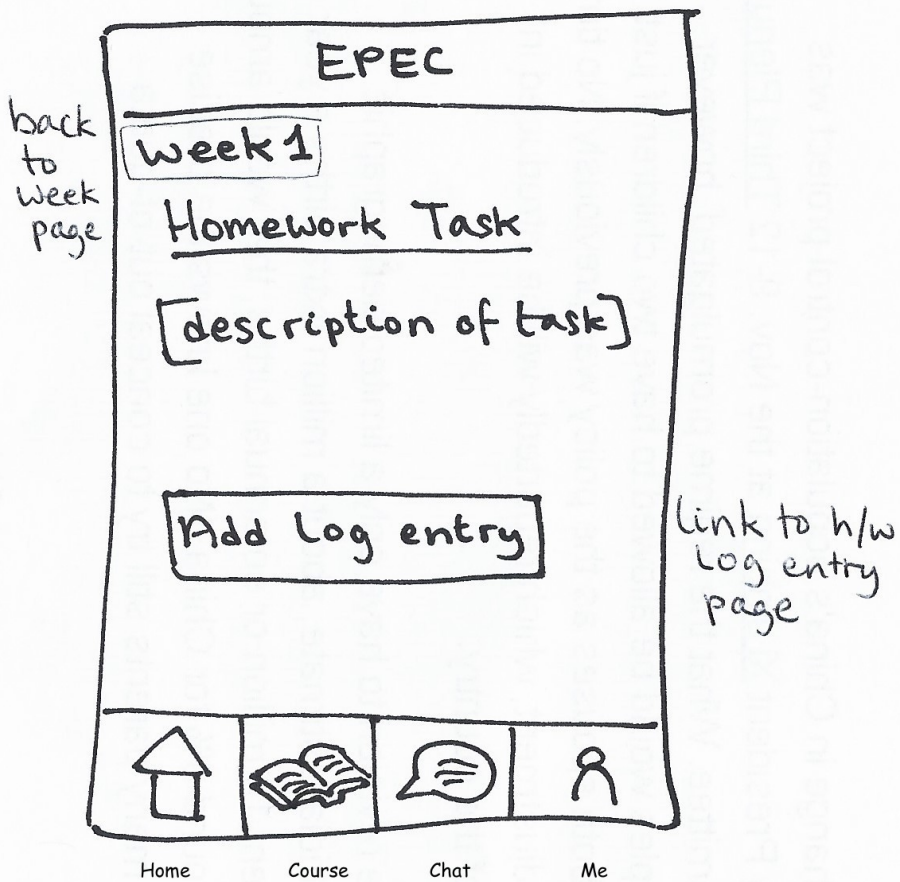 EPEC
back
to
week
page
Week 1
Homework Task
[description of task]
Add log entry
link to h/w
log entry
page
Home Course Chat Me